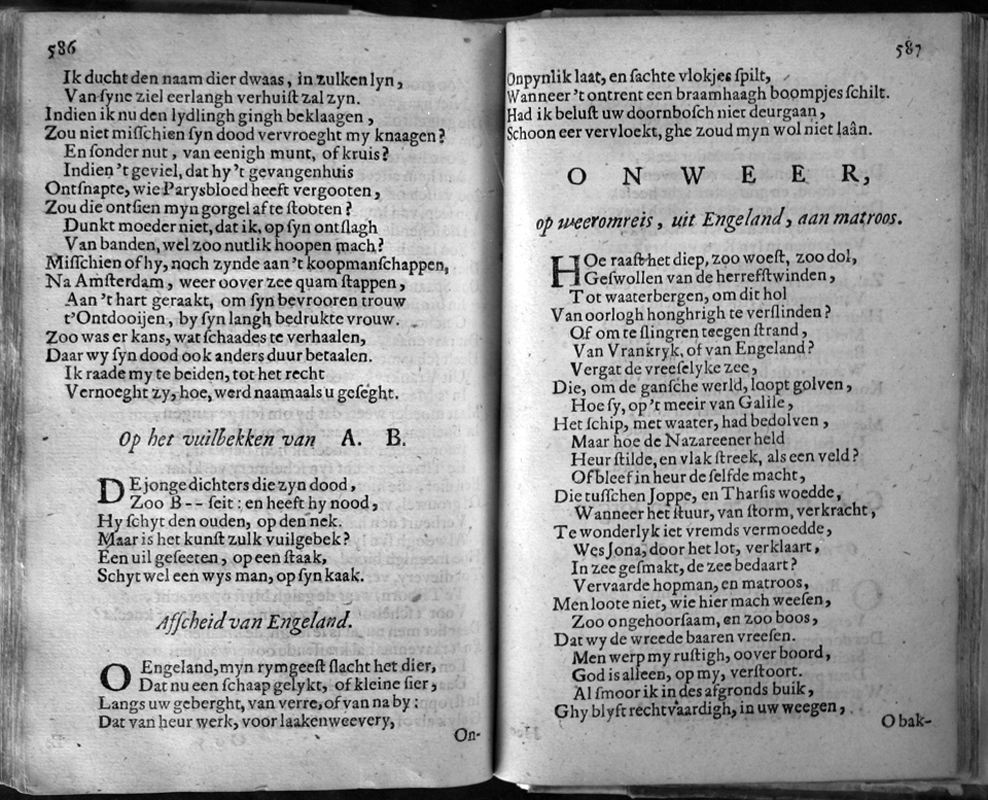 586
Ik ducht den naam dier dwaas, in zulken lyn,
Van ſyne ziel eerlangh verhuiſt zal zyn.
Indien ik nu den lydlingh gingh beklaagen,
Zou niet miſſchien ſyn dood vervroeght my knaagen?
En ſonder nut, van eenigh munt, of kruis?
Indien 't geviel, dat hy 't gevangenhuis
Ontſnapte, wie Parysbloed heeft vergooten,
Zou die ontſien myn gorgel af te ſtooten?
Dunkt moeder niet, dat ik, op ſyn ontſlagh
Van banden, wel zoo nutlik hoopen mach?
Miſſchien of hy, noch zynde aan 't koopmanſchappen,
Na Amſterdam, weer oover zee quam ſtappen,
Aan 't hart geraakt, om ſyn bevrooren trouw
t'Ontdooijen, by ſyn langh bedrukte vrouw.
Zoo was er kans, wat ſchaades te verhaalen,
Daar wy ſyn dood ook anders duur betaalen.
Ik raade my te beiden, tot het recht
Vernoeght zy, hoe, werd naamaals u geſeght.
Op het vuilbekken van A. B.
DE jonge dichters die zyn dood,
Zoo B -- ſeit: en heeft hy nood,
Hy ſchyt den ouden, op den nek.
Maar is het kunſt zulk vuilgebek?
Een uil geſeeten, op een ſtaak,
Schyt wel een wys man, op ſyn kaak.
Afſcheid van Engeland.
O Engeland, myn rymgeeſt ſlacht het dier,
Dat nu een ſchaap gelykt, of kleine ſier,
Langs uw geberght, van verre, of van na by:
Dat van heur werk, voor laakenweevery,
On-
587
Onpynlik laat, en ſachte vlokjes ſpilt,
Wanneer 't ontrent een braamhaagh boompjes ſchilt.
Had ik beluſt uw doornboſch niet deurgaan,
Schoon eer vervloekt, ghe zoud myn wol niet laân.
ONWEER,
op weeromreis, uit Engeland, aan matroos.
HOe raaſt het diep, zoo woeſt, zoo dol,
Geſwollen van de herrefſtwinden,
Tot waaterbergen, om dit hol
Van oorlogh honghrigh te verſlinden?
Of om te ſlingren teegen ſtrand,
Van Vrankryk, of van Engeland?
Vergat de vreeſelyke zee,
Die, om de ganſche werld, loopt golven,
Hoe ſy, op 't meeir van Galile,
Het ſchip, met waater, had bedolven,
Maar hoe de Nazareener held
Heur ſtilde, en vlak ſtreek, als een veld?
Of bleef in heur de ſelfde macht,
Die tuſſchen Joppe, en Tharſis woedde,
Wanneer het ſtuur, van ſtorm, verkracht,
Te wonderlyk iet vremds vermoedde,
Wes Jona, door het lot, verklaart,
In zee geſmakt, de zee bedaart?
Vervaarde hopman, en matroos,
Men loote niet, wie hier mach weeſen,
Zoo ongehoorſaam, en zoo boos,
Dat wy de wreede baaren vreeſen.
Men werp my ruſtigh, oover boord,
God is alleen, op my, verſtoort.
Al ſmoor ik in des afgronds buik,
Ghy blyft rechtvaardigh, in uw weegen,
O bak-